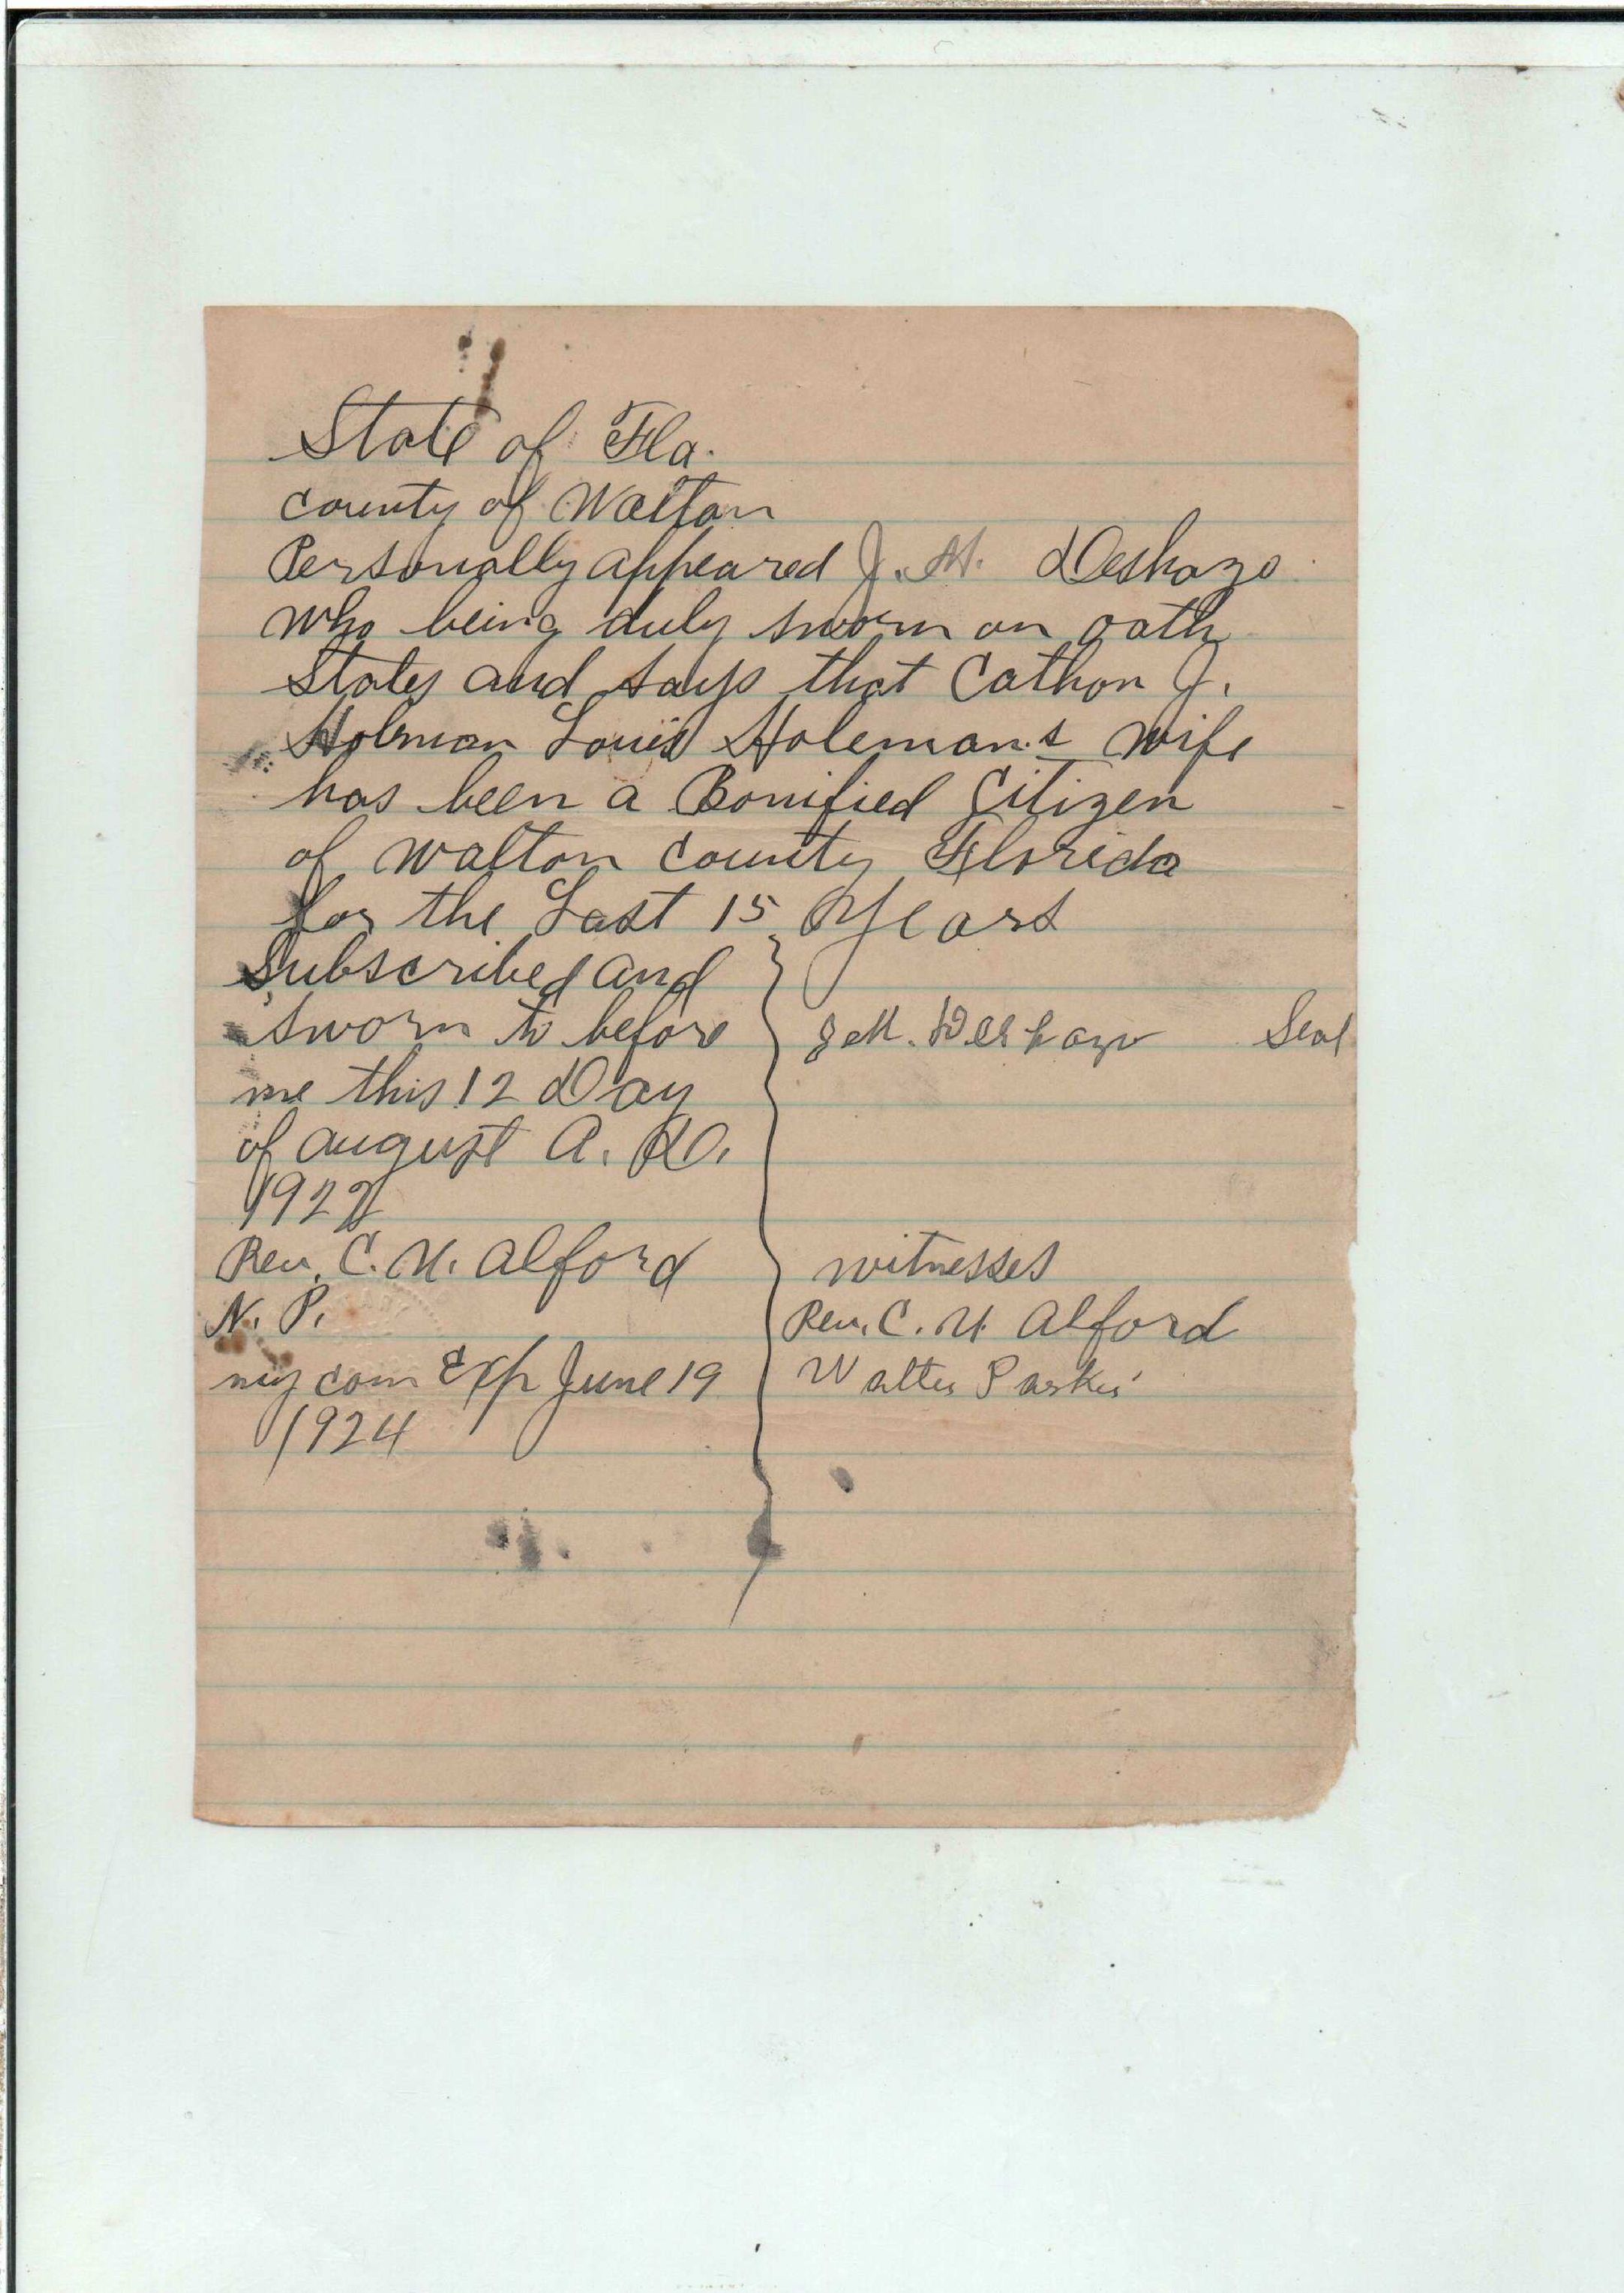 State of Fla.
county of Walton
Personally appeared J. M. Deshazo
who being duly sworn on oath
States and says that Cathon J.
Holman Louis Holeman.s wife
has been a Bonified Citizen
of Walton County Florida
for the Last 15 Years
Subscribed and
sworn to before
me this 12 Day
of august A. D.
1922
Rev. C. U. Alford
N. P.
my com Exp June 19
1924
J M. Deshazo Seal
witnesses
Rev. C. U. Alford
Walter Parker